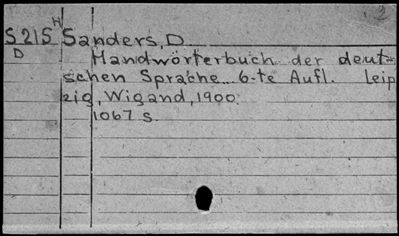 H 2
S215 Sanders, D.
D Handwörterbuch der deut-
schen Sprache... 6-te Aufl. Leip
zig, Wigand, 1900.
1067 s.